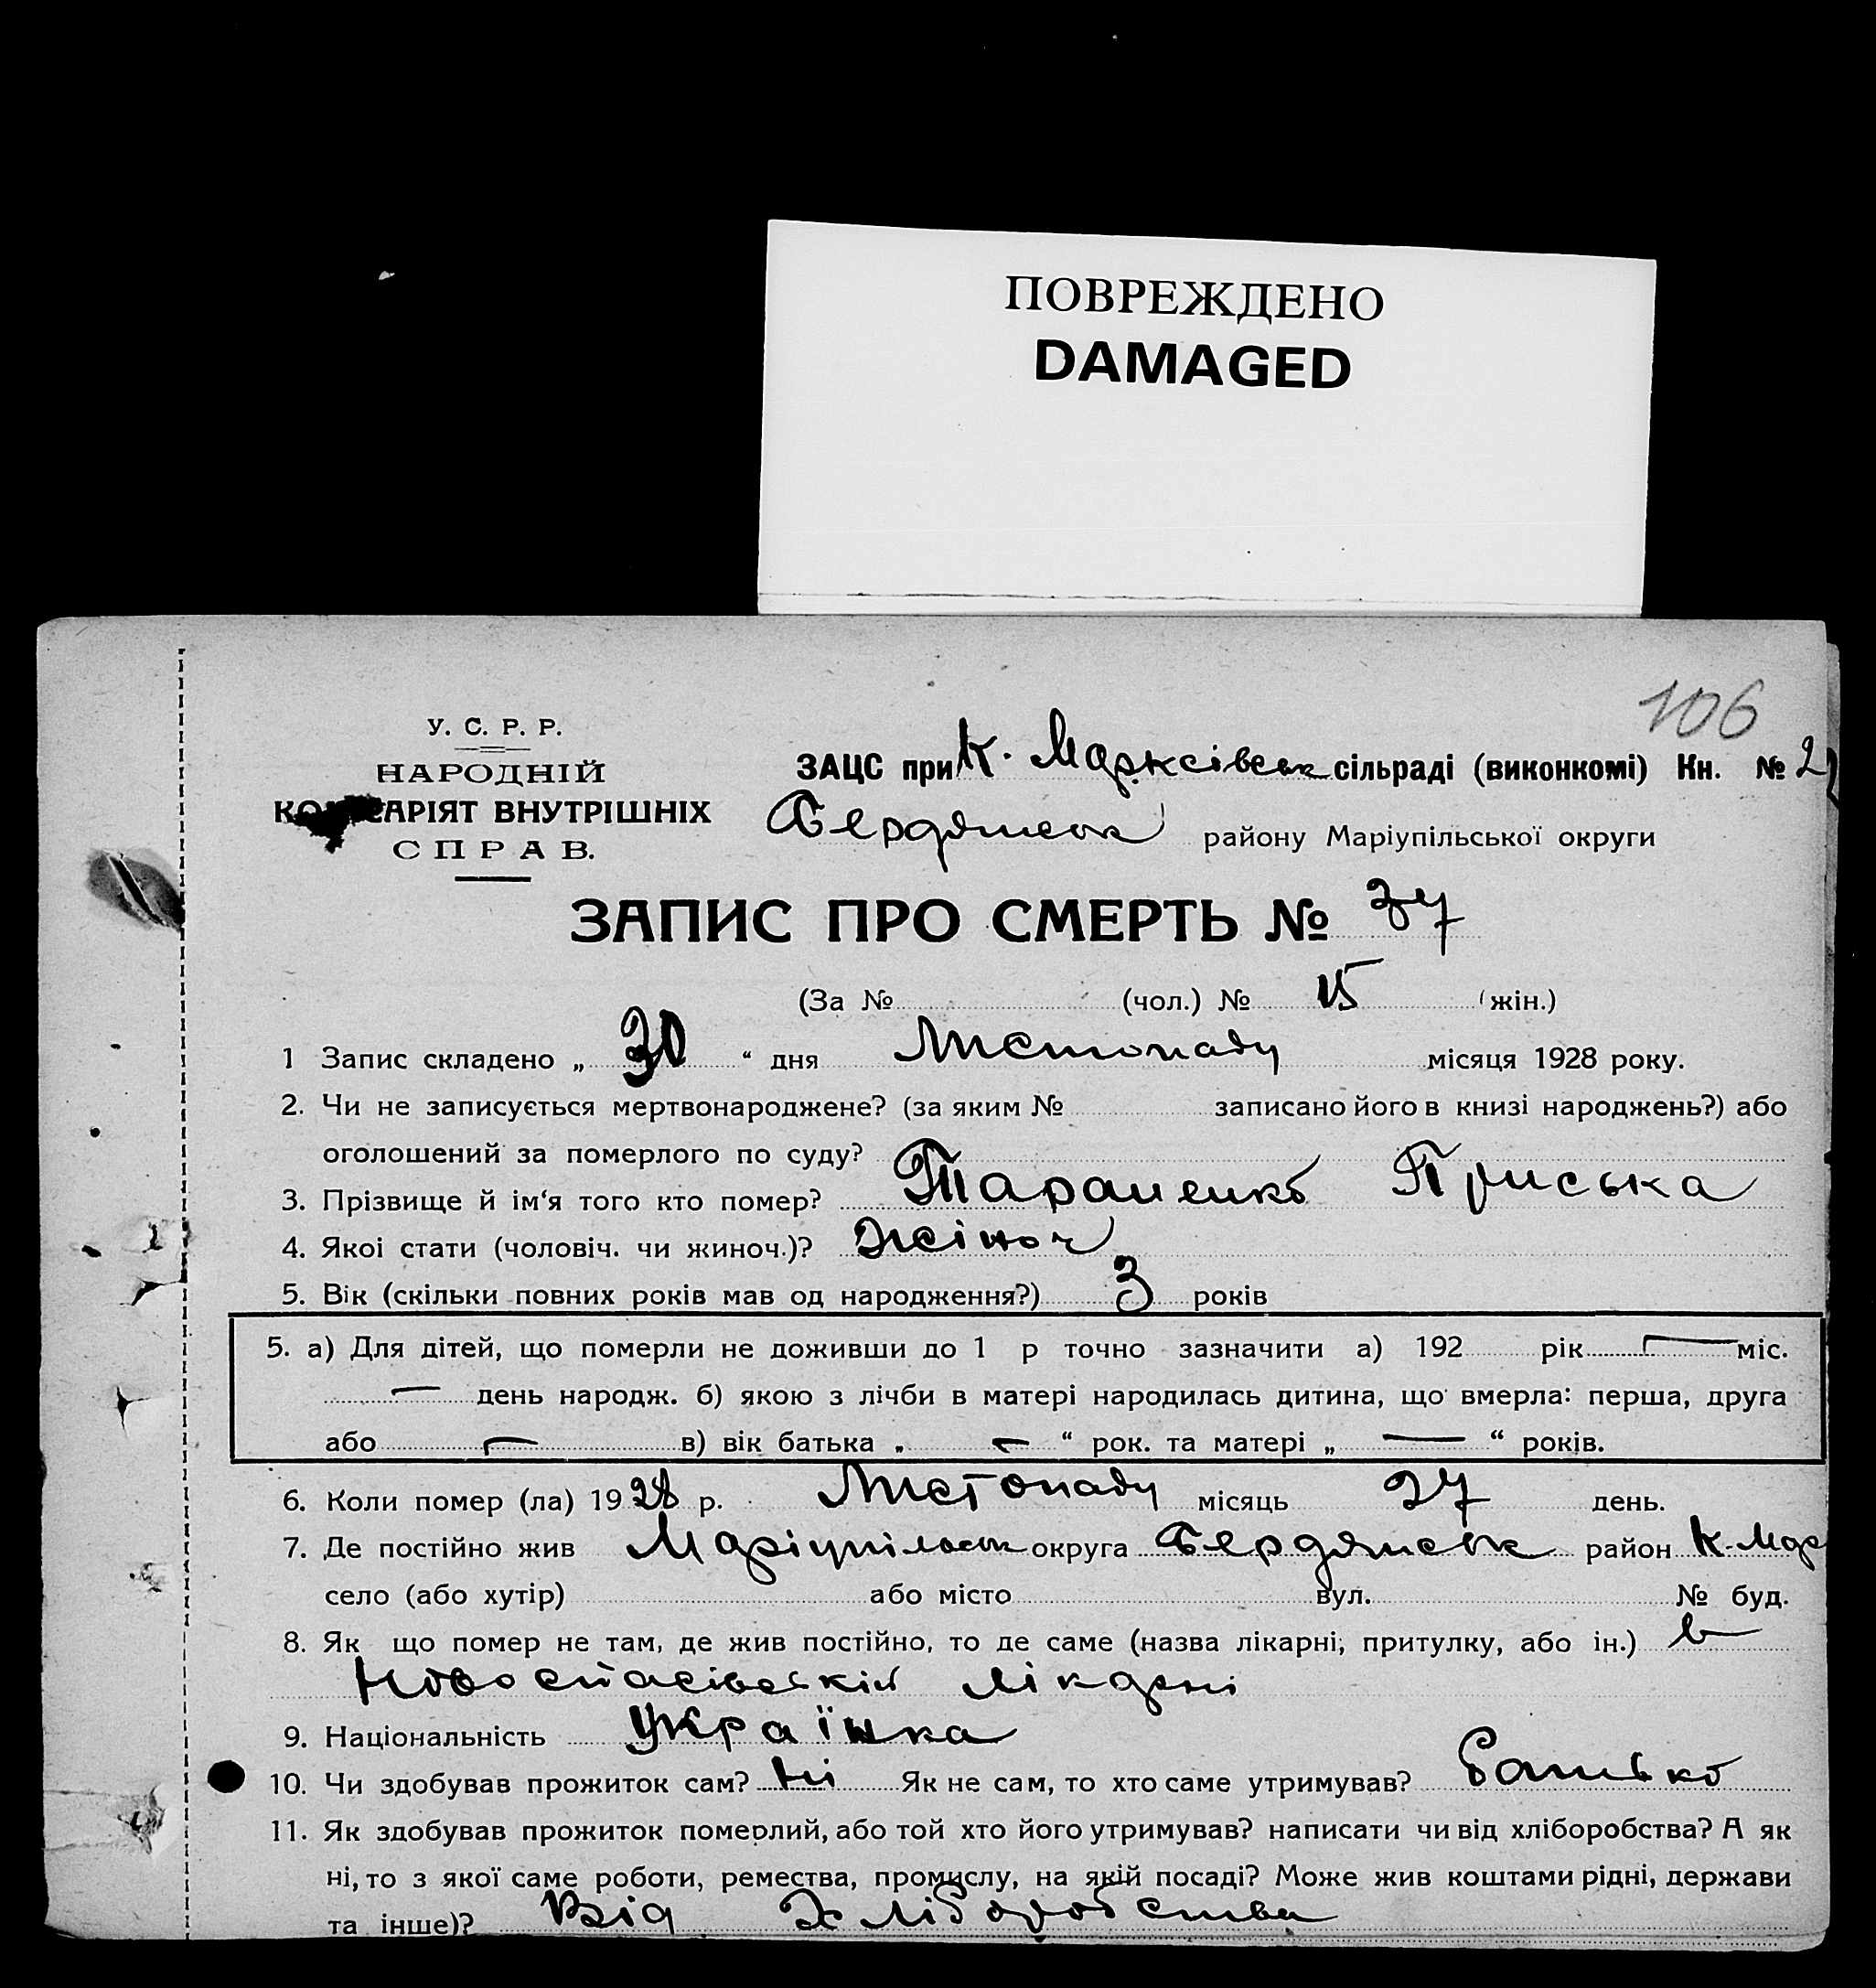 ПОВРЕЖДЕНО
DAMAGED
106
У. С. Р. Р.
НАРОДНІЙ
КОМІСАРІЯТ ВНУТРІШНІХ
СПРАВ.
ЗАЦС при К. Марксівськ сільраді (виконкомі) Кн. № 2
Бердянськ району Маріупільської округи
ЗАПИС ПРО СМЕРТЬ № 37
(За № (чол.) № 15 (жін.)
1 Запис складено „ 30 “ дня Листопаду місяця 1928 року.
2. Чи не записується мертвонароджене? (за яким № записано його в книзі народжень?) або
оголошений за померлого по суду?
3. Прізвище й ім‘я того кто помер? Тараненко Приська
4. Якоі стати (чоловіч. чи жиноч.)? жіноч
5. Вік (скільки повних років мав од народження?) 3 років
5. а) Для дітей, що померли не доживши до 1 р точно зазначити а) 192 рік — міс.
— день народж. б) якою з лічби в матері народилась дитина, що вмерла: перша, друга
або — в) вік батька „ — “ рок. та матері „ — “ років.
6. Коли помер (ла) 1928 р. Листопаду місяць 27 день.
7. Де постійно жив Маріупільськ округа Бердянськ район К-Мар
село (або хутір) або місто вул. № буд.
8. Як що помер не там, де жив постійно, то де саме (назва лікарні, притулку, або ін.) в
Новоспасівській лікарні
9. Національність Українка
10. Чи здобував прожиток сам? ні Як не сам, то хто саме утримував? Батько
11. Як здобував прожиток померлий, або той хто його утримував? написати чи від хліборобства? А як
ні, то з якої саме роботи, ремества, промислу, на якій посаді? Може жив коштами рідні, держави
та інше)? Від Хліборобства